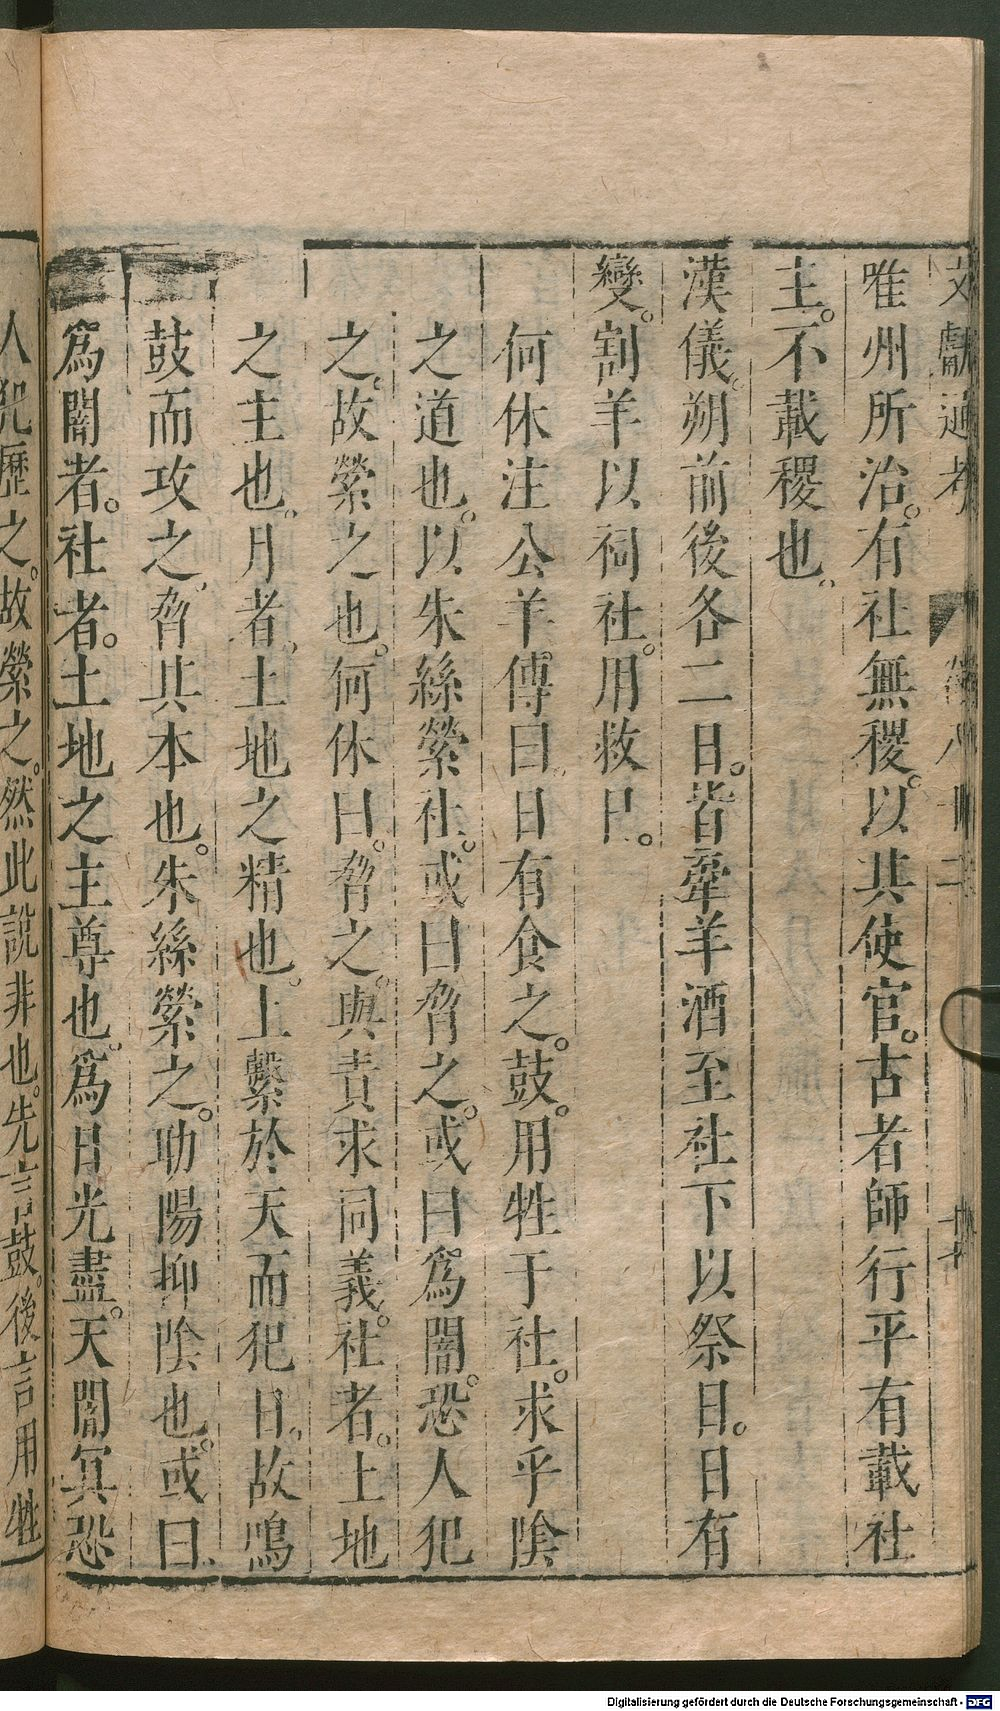 文獻通考 卷八十二
唯州所治。有社無稷。以其使官。古者師行平有載社
主。不載稷也。
漢儀。朔前後各二日。皆牽羊酒至社下以祭日。日有
變。割羊以祠社。用救日。
何休注公羊傳曰。日有食之。鼓。用牲于社。求乎陰
之道也。以朱絲縈社。或曰脅之。或曰爲闇。恐人犯
之。故縈之也。何休曰。脅之。與責求同義。社者。土地
之主也。月者。土地之精也。上繫於天而犯日。故鳴
鼓而攻之。脅其本也。朱絲縈之。助陽抑陰也。或曰。
爲闇者。社者。土地之主尊也。爲日光盡。天闇冥。恐
人犯歷之。故縈之。然此說非也。先言鼓。後言用牲
Digitalisierung gefördert durch die Deutsche Forschungsgemeinschaft - DFG